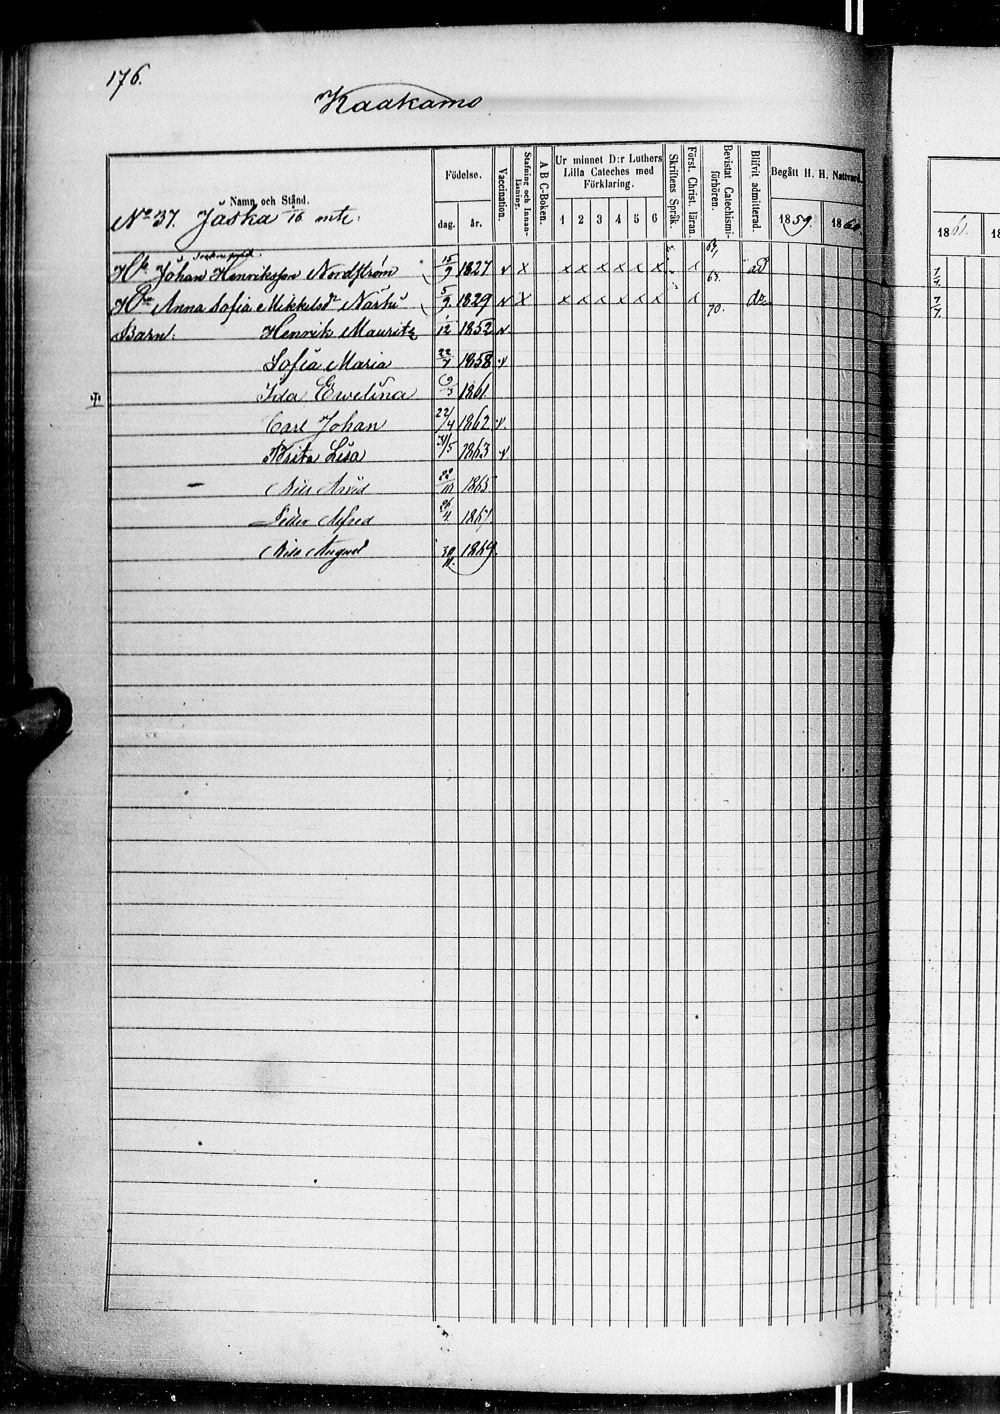 176.
Kaakamo
Namn och Stånd.
Födelse.
dag.
år.
Vaccination.
Stafning och Innan-läsning.
A B C-Boken.
Ur minnet D:r Luthers Lilla Cateches med Förklaring.
1 2 3 4 5 6
Skriftens Språk.
Först. Christ. läran.
Bevistat Catechismi-förhören.
Blifvit admitterad.
Begått H. H. Nattvard.
1859. 1860
1861. 18
No 37. Jaska 1/16 mtl:
Johan Henriksson Nordström 15/9 1827 v x x x x x x x x 63. ad
Anna Sofia Mikkelsdr 5/9 1829 v x x x x x x x x 70. do
Barn: Henrik Mauritz 1/12 1852 v
Sofia Maria 22/7 1858 v
Ida Ewelina 9/3 1861
Carl Johan 22/4 1862 v.
Brita Lisa 31/5 1863 v
Nils Arvid 1865
Peder Alfred 1867.
Nils August 1869.